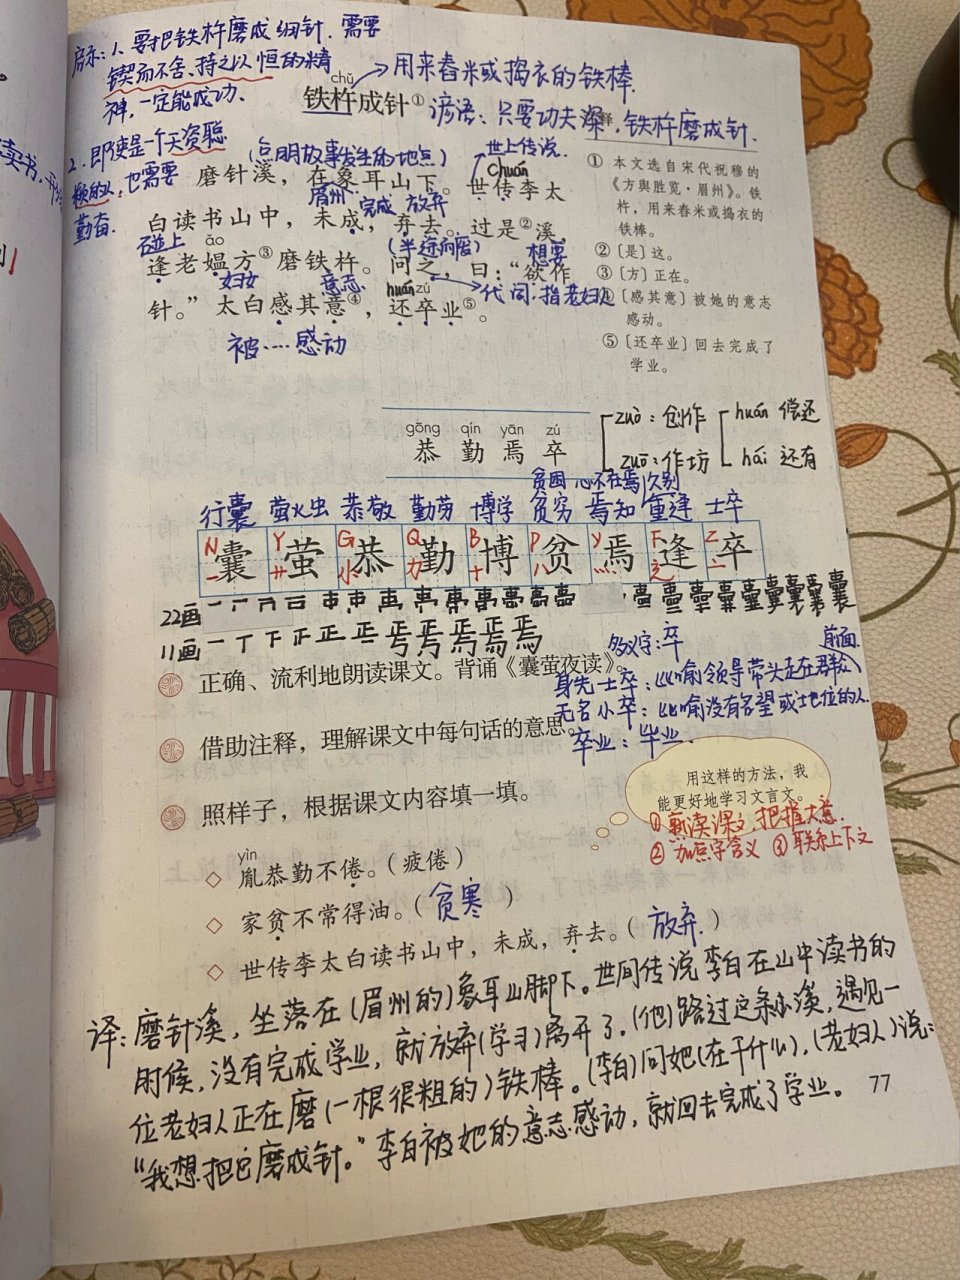 启示:1、要把铁杵磨成细针.需要
锲而不舍、持之以恒的精
神,一定能成功、
2.即使是一个天资聪
颖的人,也需要
勤奋.
chǔ
用来舂米或捣衣的铁棒.
铁杵成针①
谚语:只要功夫深,铁杵磨成针.
(点明故事发生的地点)
世上传说.
chuán
磨针溪,在象耳山下。世传李太
眉州
完成
放弃
白读书山中,未成,弃去。过是②溪,
碰上
ǎo
(半途而废)
想要
逢老媪方③磨铁杵。问之,曰:“欲作
妇女
意志
huán zú
代词:指老妇人
针。”太白感其意④,还卒业⑤。
被……感动
① 本文选自宋代祝穆的
《方舆胜览·眉州》。铁
杵,用来舂米或捣衣的
铁棒。
②〔是〕这。
③〔方〕正在。
〔感其意〕被她的意志
感动。
⑤〔还卒业〕回去完成了
学业。
gōng qín yān zú
恭 勤 焉 卒
zuò:创作
zuō:作坊
huán 偿还
hái 还有
贫困 心不在焉 久别
行囊 萤火虫 恭敬 勤劳 博学 贫穷 焉知 重逢 士卒
N Y G Q B P Y F Z
囊 萤 恭 勤 博 贫 焉 逢 卒
22画
11画 一 丁 下 正 正
正确、流利地朗读课文。背诵《囊萤夜读》。
多义字:卒
前面
身先士卒:比喻领导带头走在群众
无名小卒:比喻没有名望或地位的人
卒业:毕业.
借助注释,理解课文中每句话的意思。
照样子,根据课文内容填一填。
用这样的方法,我
能更好地学习文言文。
①熟读课文,把握大意.
②加点字含义 ③联系上下文
yìn
◇ 胤恭勤不倦。(疲倦)
◇ 家贫不常得油。(贫寒)
◇ 世传李太白读书山中,未成,弃去。(放弃.)
译:磨针溪,坐落在(眉州的)象耳山脚下。世间传说李白在山中读书的
时候,没有完成学业,就放弃(学习)离开了.(他)路过这条小溪,遇见一
位老妇人正在磨(一根很粗的)铁棒。(李白)问她(在干什么),(老妇人)说:
“我想把它磨成针。”李白被她的意志感动,就回去完成了学业。
77